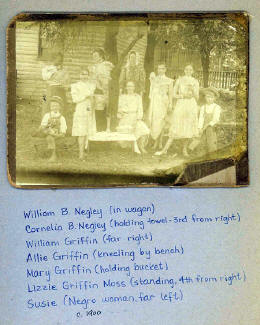 William B. Negley (in wagon)
Cornelia B. Negley (holding towel - 3rd from right)
William Griffin (far right)
Allie Griffin (kneeling by bench)
Mary Griffin (holding bucket)
Lizzie Griffin Moss (standing, 4th from right)
Susie (Negro woman, far left)
c. 1900